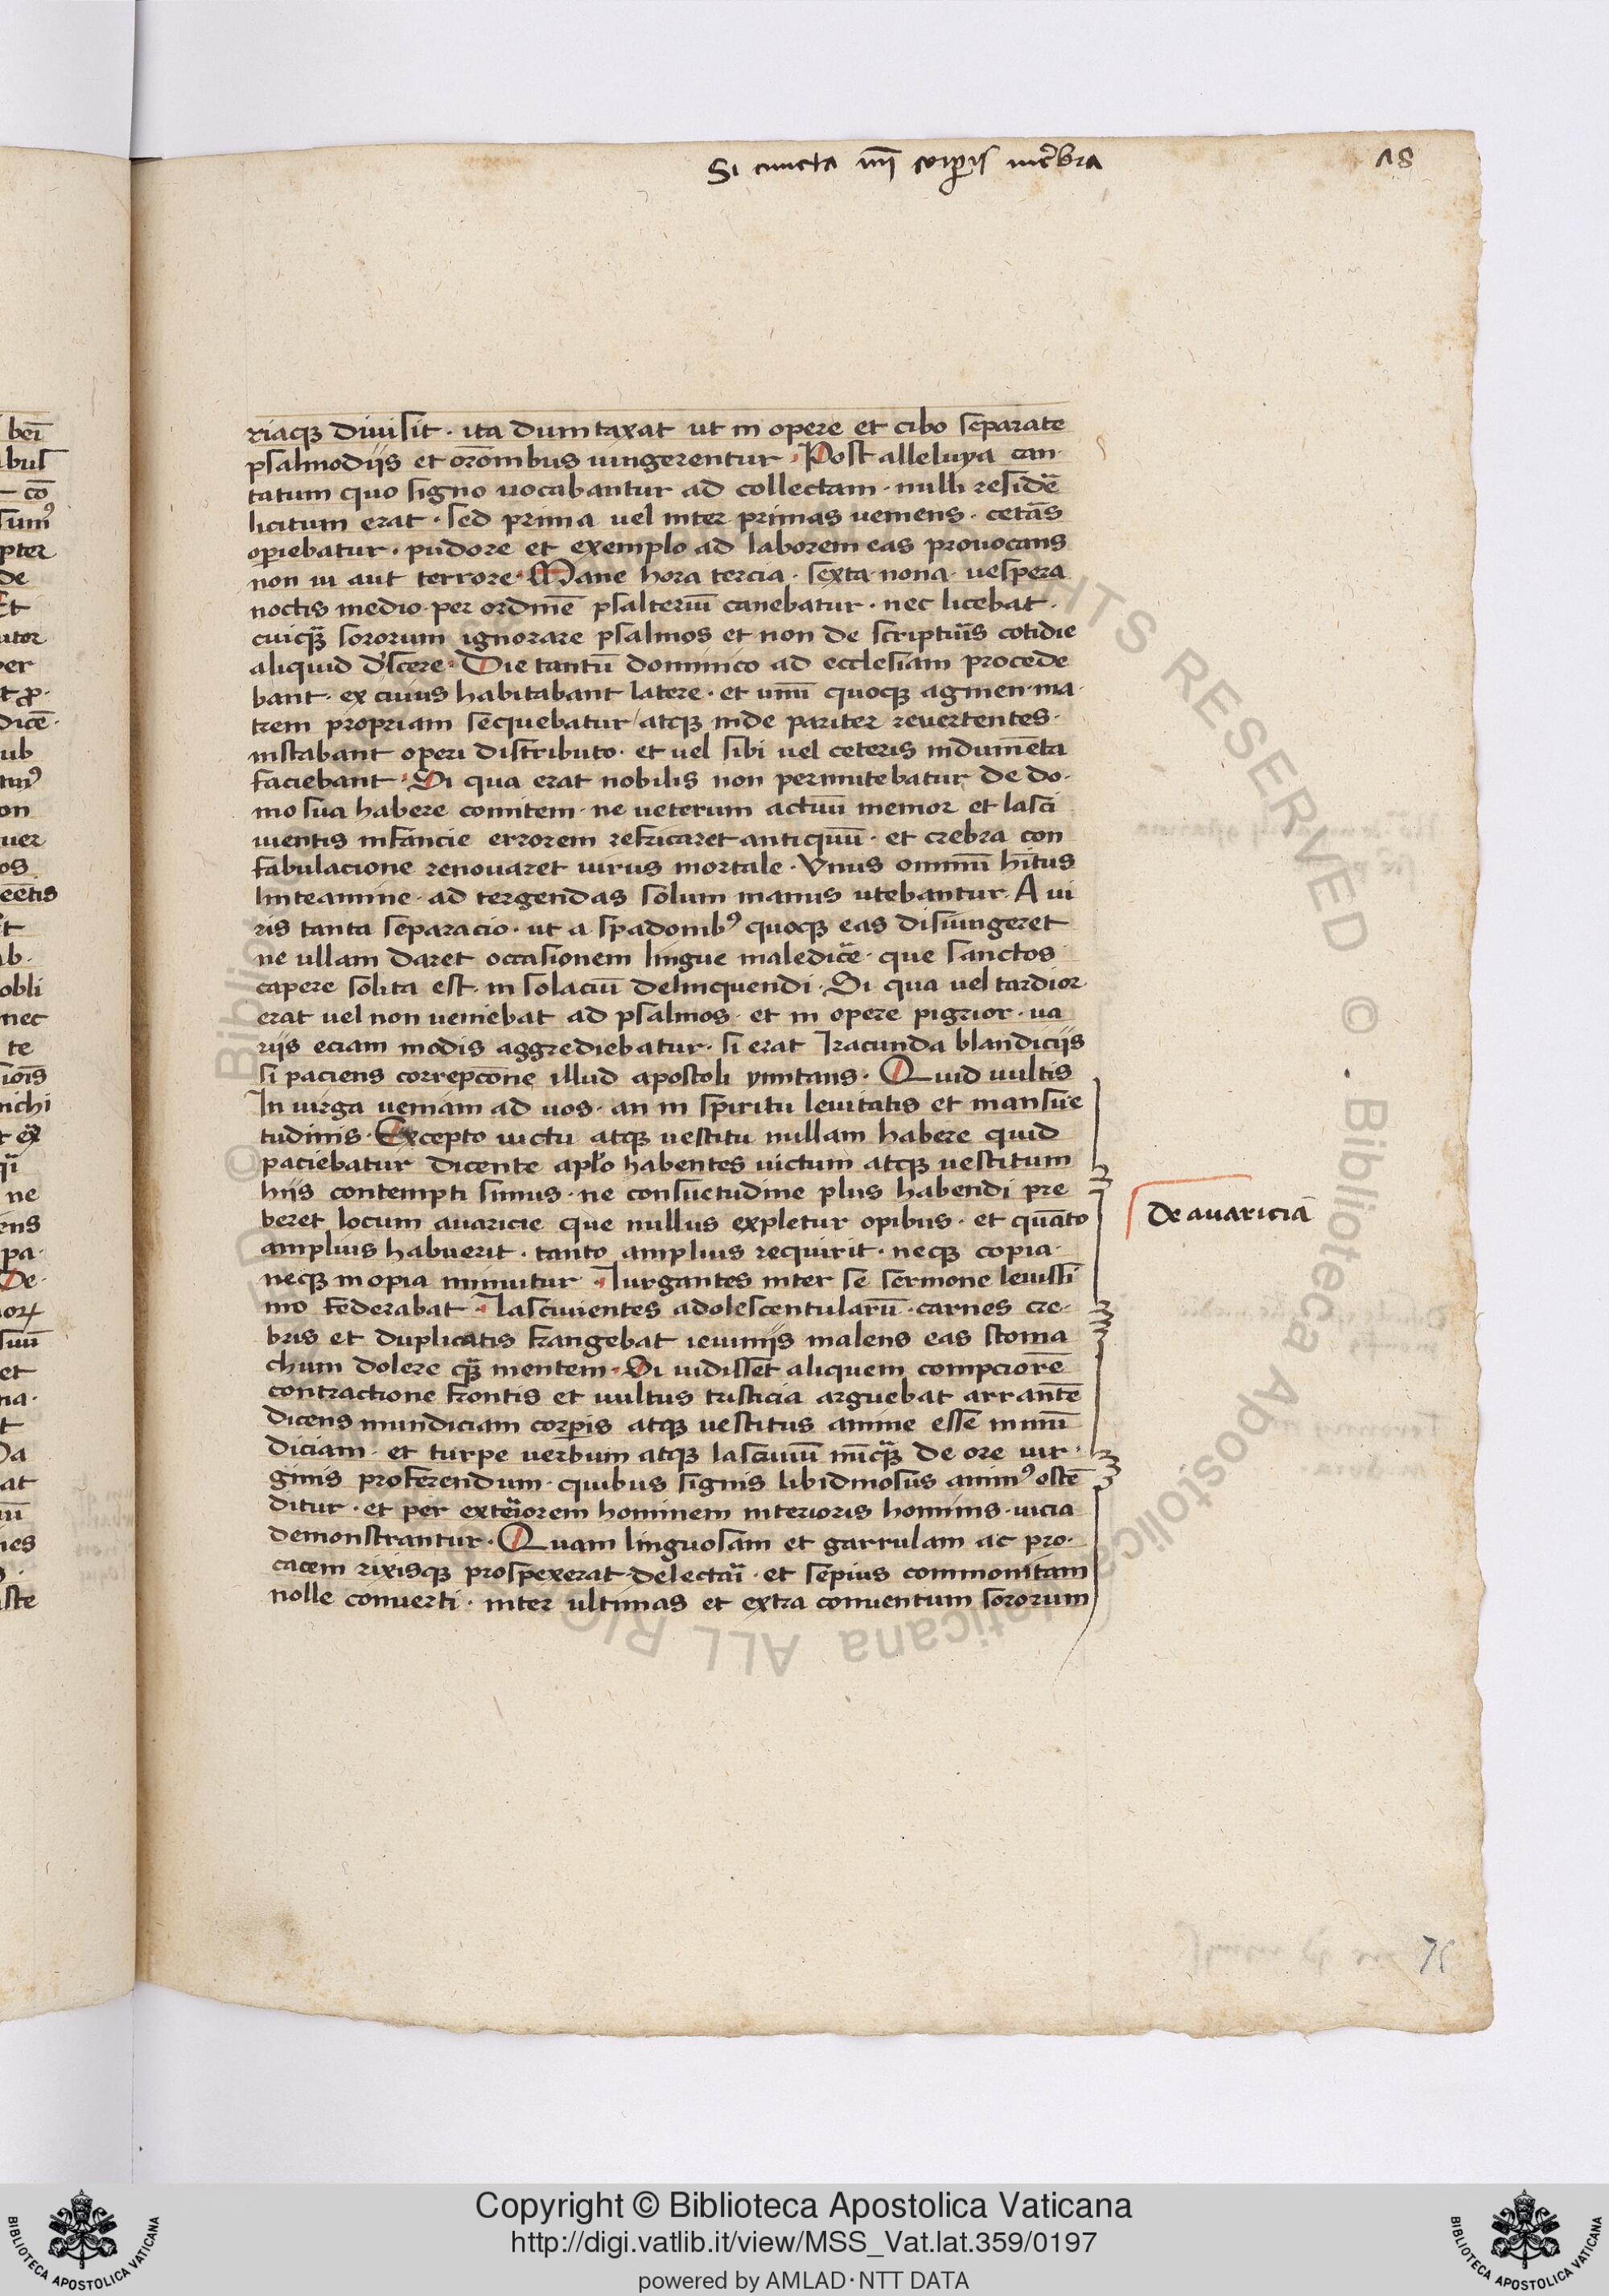 Si cuncta mi corꝑis mēbra
18
riaqꝫ diuisit · ita dumtaxat ut in opere et cibo separate
psalmodijs et orōnibus iungerentur · Post alleluya can
tatum quo signo uocabantur ad collectam · nulli residē
licitum erat · sed prima uel inter primas ueniens · cetās
opiebatur · pudore et exemplo ad laborem eas prouocans
non ui aut terrore · Mane hora tercia · sexta · nona · uespera
noctis medio · per ordinē psalteriū canebatur · nec licebat ·
cuiqꝫ sororum ignorare psalmos et non de scripturis cotidie
aliquid discere · Die tantū dominico ad ecclesiam procede
bant · ex cuius habitabant latere · et unū quoqꝫ agmen · ma
trem propriam sequebatur / atqꝫ inde pariter reuertentes ·
instabant operi distributo · et uel sibi uel ceteris indumēta
faciebant · Si qua erat nobilis non permittebatur de do·
mo sua habere comitem · ne ueterum actuū memor et lasci
uientis infancie errorem refricaret antiquū · et crebra con
fabulacione renouaret uirus mortale · Vnus omniū hītus
linteamine · ad tergendas solum manus utebantur · A ui
ris tanta separacio · ut a spadonibꝰ quoqꝫ eas disiungeret
ne ullam daret occasionem lingue maledice · que sanctos
capere solita est · in solaciū delinquendi · Si qua uel tardior
erat uel non ueniebat ad psalmos · et in opere pigrior · ua
rijs eciam modis aggrediebatur · si erat Iracunda blandicijs
si paciens correpcōne illud apostoli ymitans · Quid uultis
In uirga ueniam ad uos · an in spiritu leuitatis et mansue
tudinis · Excepto uictu atqꝫ uestitu nullam habere quid
paciebatur dicente aplo habentes uictum atqꝫ uestitum
hijs contempti simus · ne consuetudine plus habendi pre
beret locum auaricie que nullus expletur opibus · et quāto
amplius habuerit · tanto amplius requirit · neqꝫ copia ·
neqꝫ inopia minuitur · Iurgantes inter se sermone leuissi
mo federabat · lasciuientes adolescentularū · carnes cre·
bris et duplicatis frangebat ieiunijs malens eas stoma
chum dolere qꝫ mentem · Si uidisset aliquem compciorē
contractione frontis et uultus tristicia arguebat arrantē
dicens mundiciam corꝑis atqꝫ uestitus anime esse inmū
diciam · et turpe uerbum atqꝫ lasciuiū nūqꝫ de ore uir·
ginis proferendum · quibus signis libidinosus animꝰ ostē
ditur · et per exteriorem hominem interioris hominis · uicia
demonstrantur · Quam linguosam et garrulam ac pro·
cacem rixisqꝫ prospexerat delectari · et sepius commonitam
nolle conuerti · inter ultimas et extra conuentum sororum
de auariciā
Copyright © Biblioteca Apostolica Vaticana
http://digi.vatlib.it/view/MSS_Vat.lat.359/0197
powered by AMLAD·NTT DATA